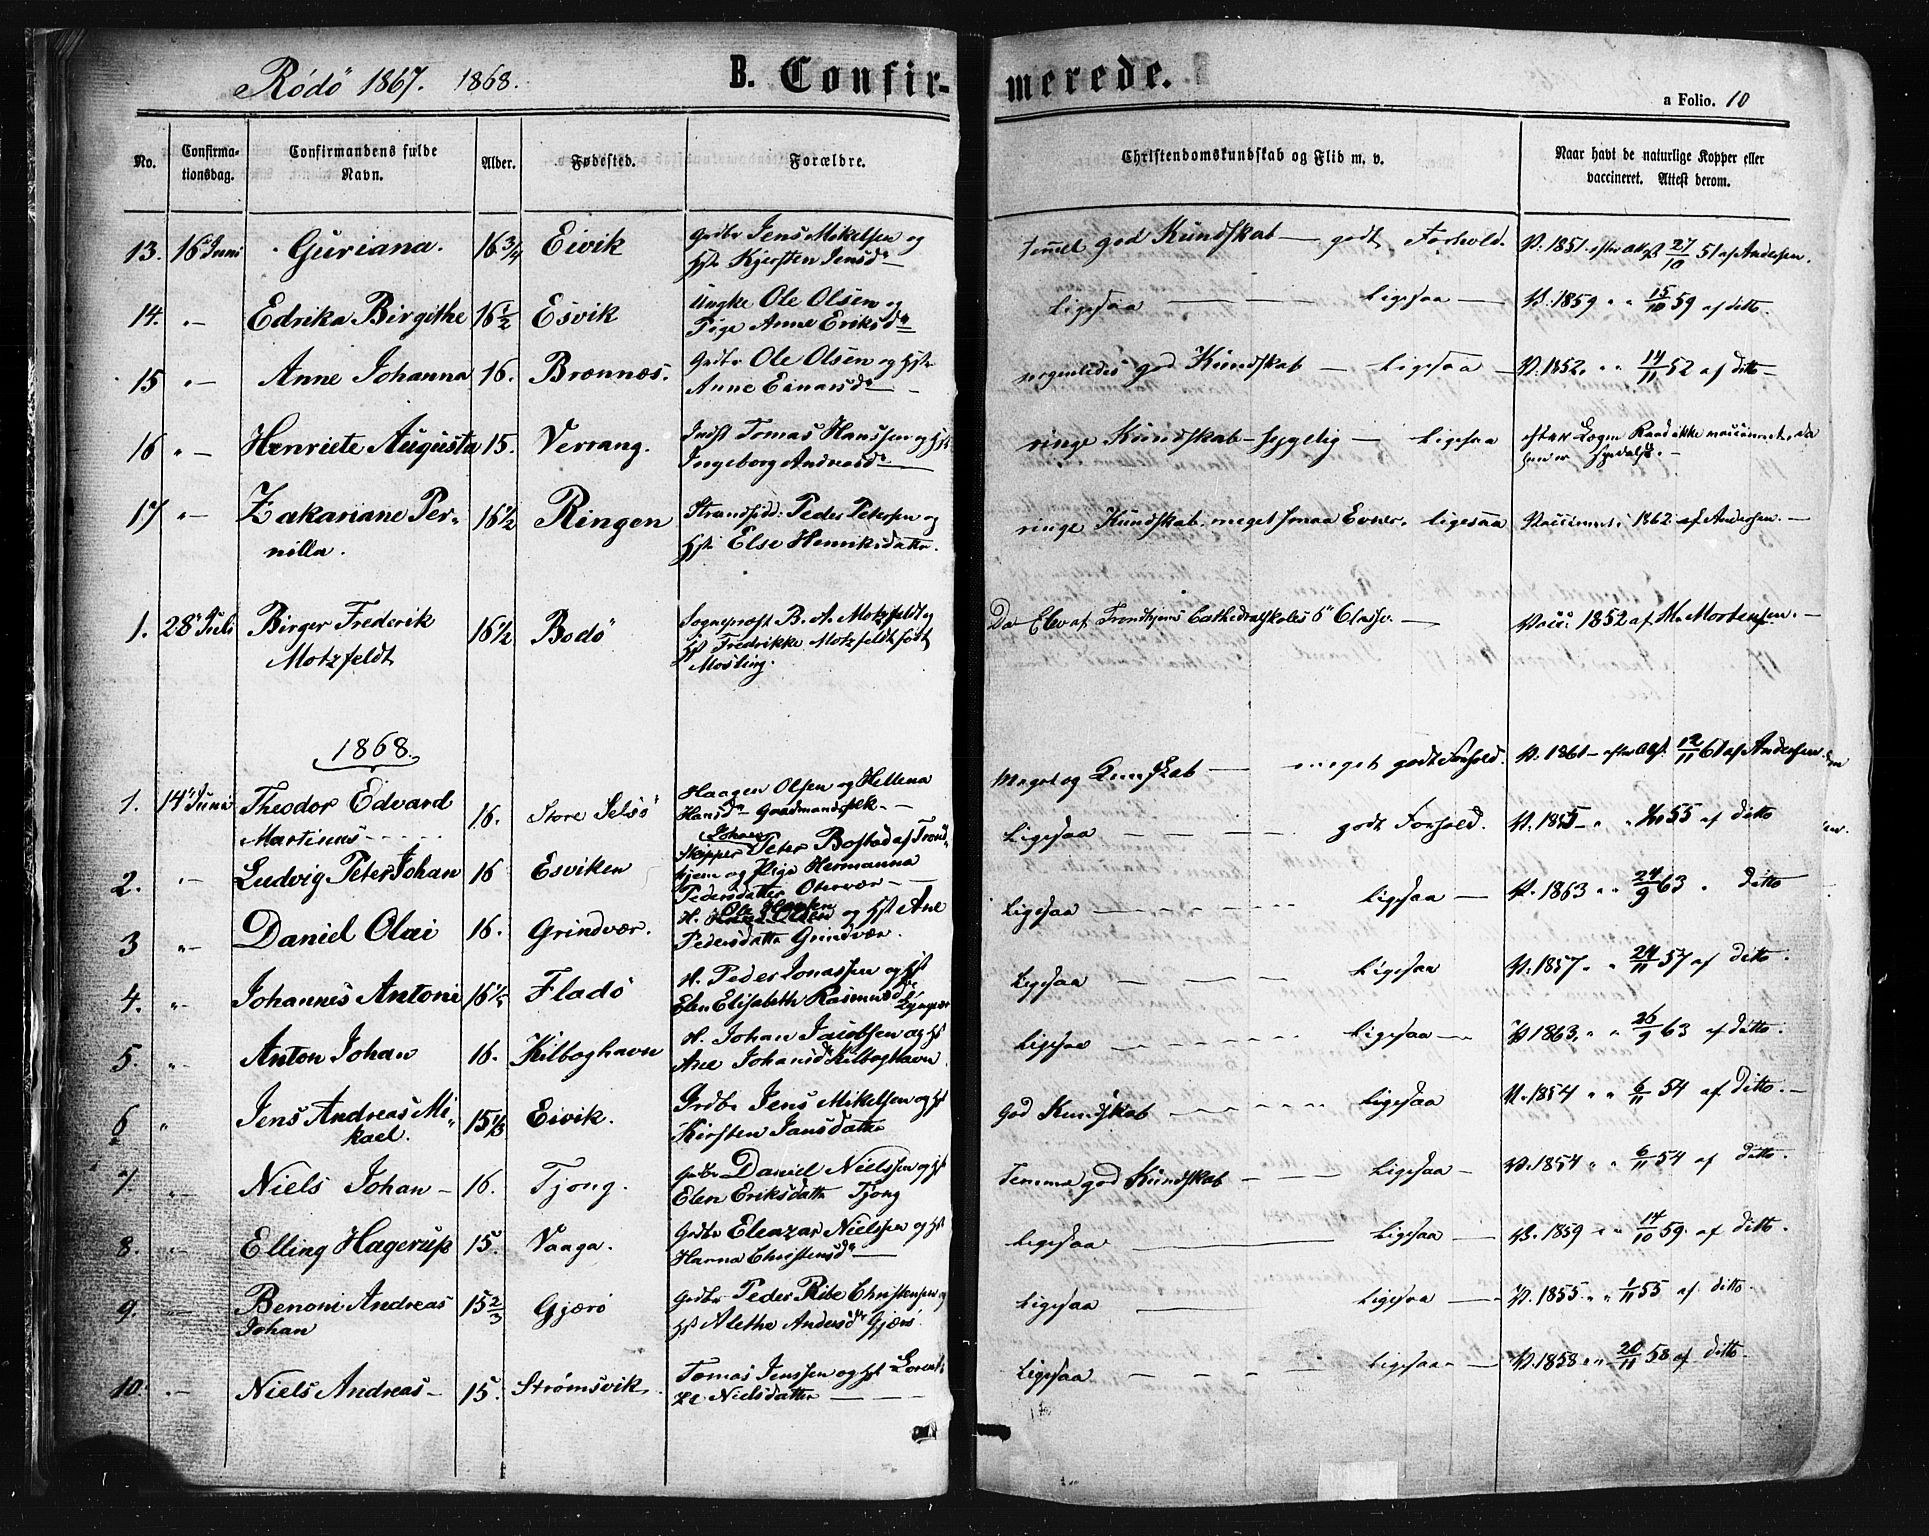 Rödö 1867. 1868.
B. Confir-
merede.
a Folio. 10
No. Confirma-tionsdag. Confirmandens fulde Navn. Alder. Fødested. Forældre. Christendomskundskab og Flid m. v. Naar havt de naturlige Kopper eller vaccineret. Attest derom.
13. 16 Juni Guriana. 16 3/4 Eivik Grdbr Jens Mikelsen og
Hst. Kjersten Jensd
temmel god Kundskab — godt Forhold. V. 1851. efter Attest 27/10 51 af Andersen.
14. " Edrika Birgithe 16 1/2 Esvik Ungke Ole Olsen og
Pige Anne Eriksd
Ligesaa — Ligesaa — V. 1859 " " 15/10 59 af ditto.
15 " Anne Johanna 16. Brønnøs. Grdbr Ole Olsen og Hst.
Anne Einarsd
nogenledes god Kundskab — Ligesaa — V. 1852. " " 14/11 52 af ditto —
16 " Henriete Augusta 15. Verrang. Indst Tomas Hanssen og Hst
Ingeborg Andreasd
ringe Kundskab — sygelig — Ligesaa
efter Lægen Raad ikke vaccineret, da
17 " Zakariane Per-
nilla. 16 1/2 Ringen Strandsidd: Peder Petersen og
Hst Else Henriksdattr.
ringe Kundskab. meget smaa Evner. ligesaa Vaccineret i 1862 af Andersen. —
1. 28 Juli Birger Frederik
Motzfeldt 16 1/2 Bodö Sogneprest B. A. Motzfeldt og
Hst Fredrikke Motzfeldt født
Mosling.
Da Elev af Trondhjems Cathedralskoles 5 Classe. — Vacc: 1852 af M. Mortensen. —
1868.
1. 14 Juni Theodor Edvard
Martinus 16. Store Selsö Haagen Olsen og Hellena
Hansd Gaadmandsfolk. —
Meget og Kundskab — meget godt Forhold. V. 1861 — efter Att. 12/11 61 af Andersen
2. " Ludvig Peter Johan 16 Esviken Johan
Skipper Peter Bostad af Trond-
hjem og Pige Hermanna
Pedersdatter Otervær —
Ligesaa — godt Forhold. V. 1855 — " " 55 af ditto
3 " Daniel Olai 16. Grindvær. Ole Hansen
H. og Hst Ane
Pedersdattr Grindvær.
Ligesaa — ligesaa V. 1863 " " 24/9 63 " ditto
4. " Johannes Antoni 16 1/2 Fladö H. Peder Jonassen og Hst
Elen Elisabeth Rasmusd
Ligesaa — Ligesaa V. 1857 " " 24/11 57 af ditto.
5. " Anton Johan 16. Kilboghavn H. Johan Jacobsen og Hst
Ane Johansd Kilboghavn
Ligesaa — Ligesaa — V. 1863. " " 26/9 63 af ditto.
6 " Jens Andreas Mi-
kael. 15 1/3 Eivik. Grdbr Jens Mikelsen og Hst
Kirsten Jansdatter
God Kundskab — Ligesaa V. 1854 " " 6/11 54 af ditto. —
7. " Niels Johan — 16. Tjong. Grdbr Daniel Nielssen og Hst
Elen Eriksdattr Tjong
Temma god Kundskab — Ligesaa — V. 1854 " " 6/11 54 af ditto.
8 " Elling Hagerup 15. Vaaga. Grdbr Eleazar Nielssen og Hst
Hanna Christensd
Ligesaa — Ligesaa — V. 1859 " " 14/10 59. af ditto.
9. " Benoni Andreas
Johan 15 2/3 Gjærö Grdbr Peder Ribe Christensen og
Hst Aletha Andersd Gjærö.
Ligesaa — Ligesaa — V. 1855. " " 1/11 55 af ditto.
10. " Niels Andreas — 15. Strømsvik. Tomas Jenssen og Hst Lorent-
ze Nielsdatter
Ligesaa — Ligesaa — V. 1858 " " 20/11 58 af ditto